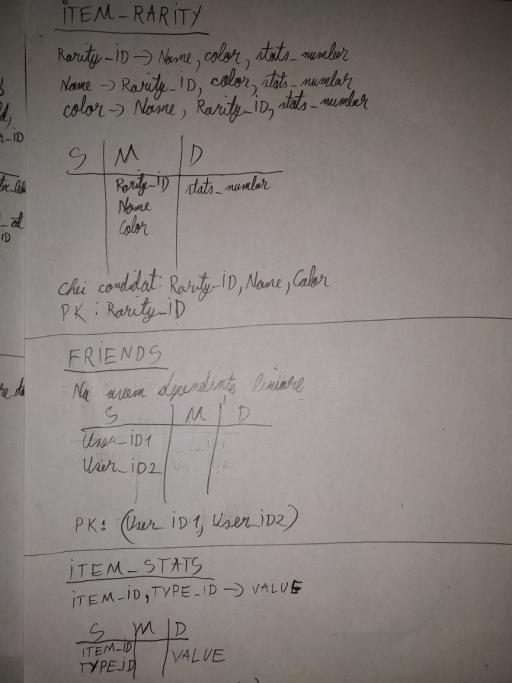 ITEM_RARITY
Rarity_ID -> Name, color, stats_number
Name -> Rarity_ID, color, stats_number
color -> Name, Rarity_ID, stats_number
S | M | D
Rarity_ID | stats_number
Name
Color
Chei candidat: Rarity_ID, Name, Color
PK: Rarity_ID
FRIENDS
Nu avem dependente liniare
S | M | D
User_ID1
User_ID2
PK: (User ID1, User ID2)
ITEM_STATS
ITEM_ID, TYPE_ID -> VALUE
S | M | D
ITEM_ID
TYPE_ID | VALUE